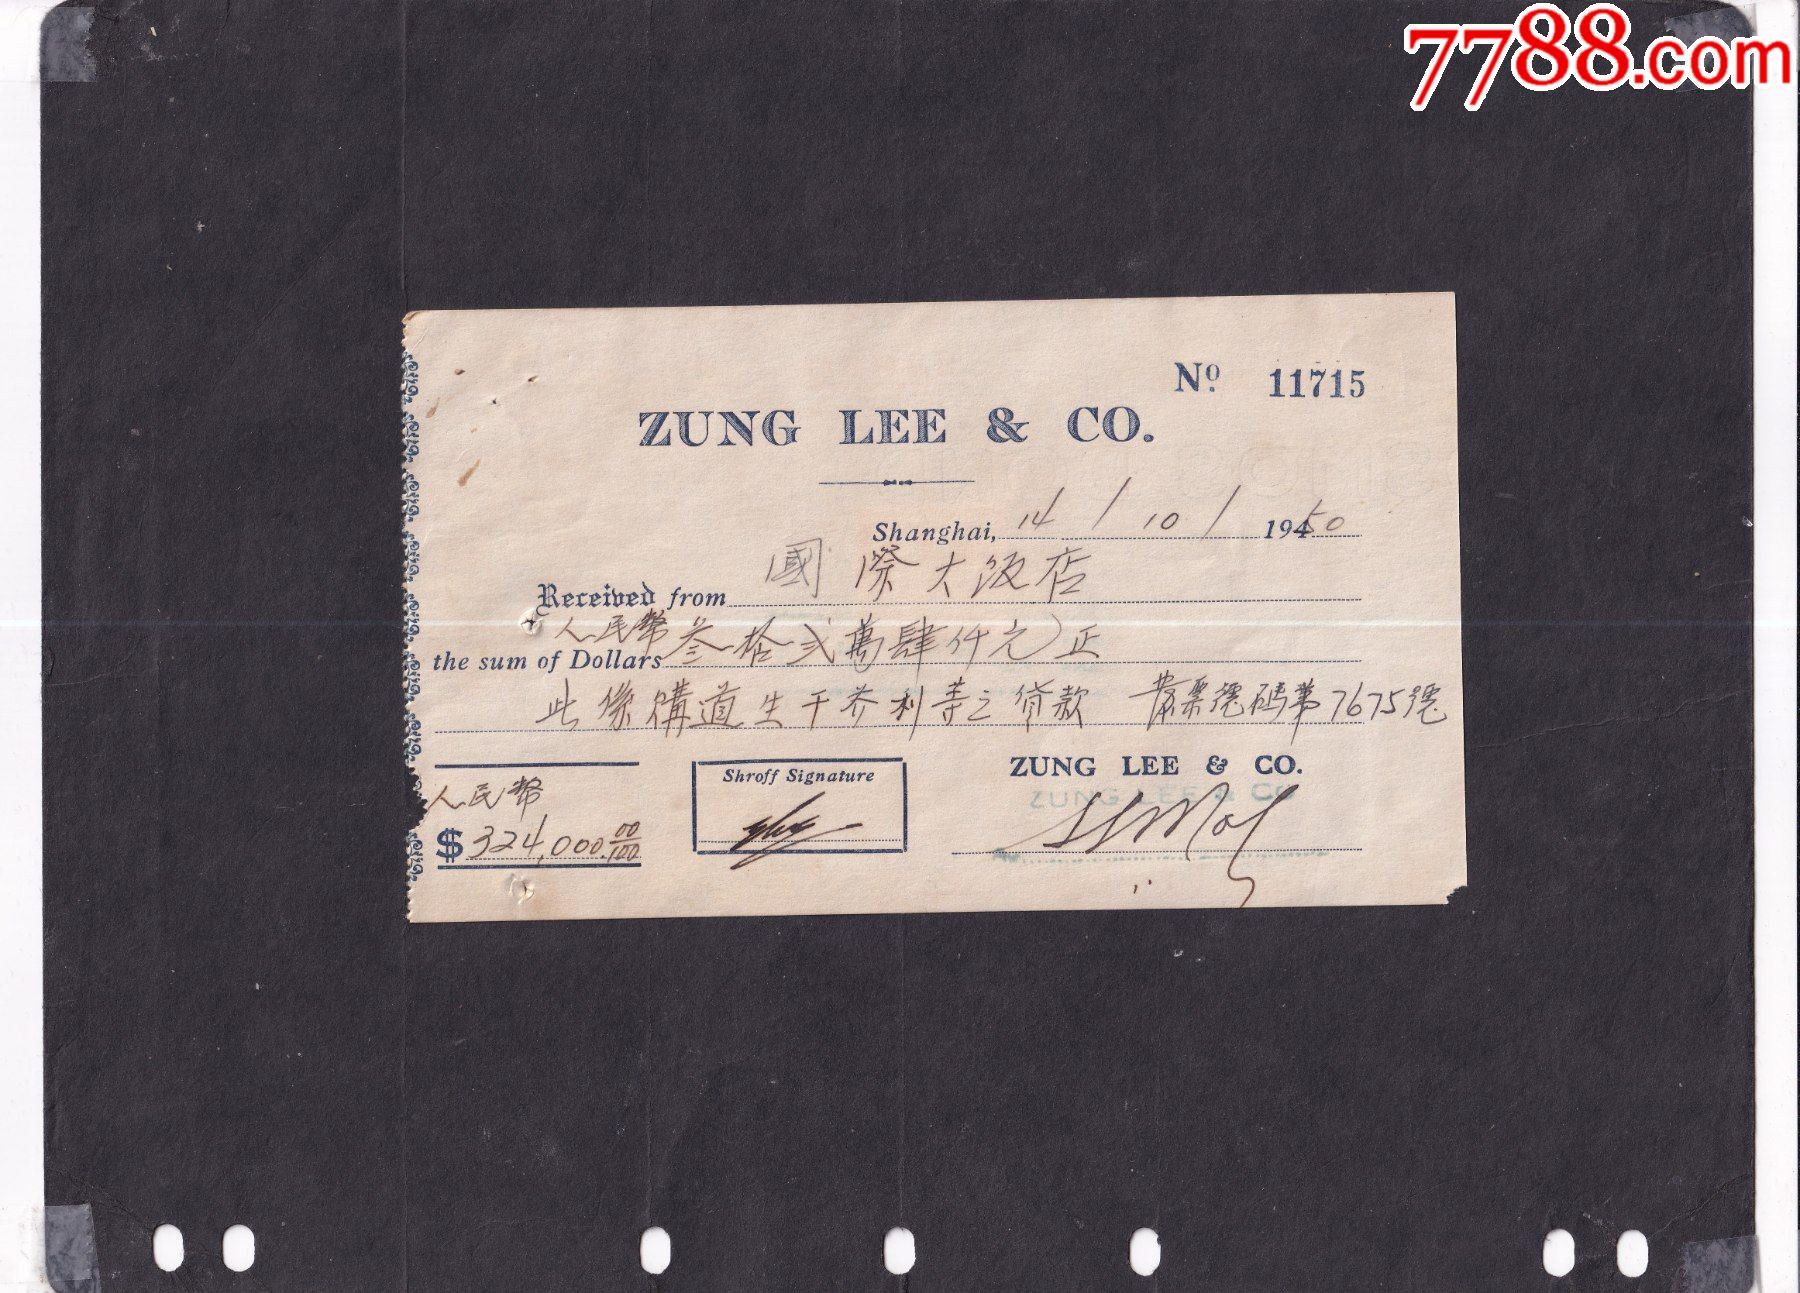 7788.com
Nº 11715
ZUNG LEE & CO.
Shanghai, 14 / 10 / 19450
Received from 國際大飯店
人民幣
the sum of Dollars 叁拾弍萬肆仟元正
此係購道生干乔利等之貸款 發票號碼第7675號
人民幣
$ 324,000.00/100
Shroff Signature
ZUNG LEE & CO.
ZUNG LEE & CO